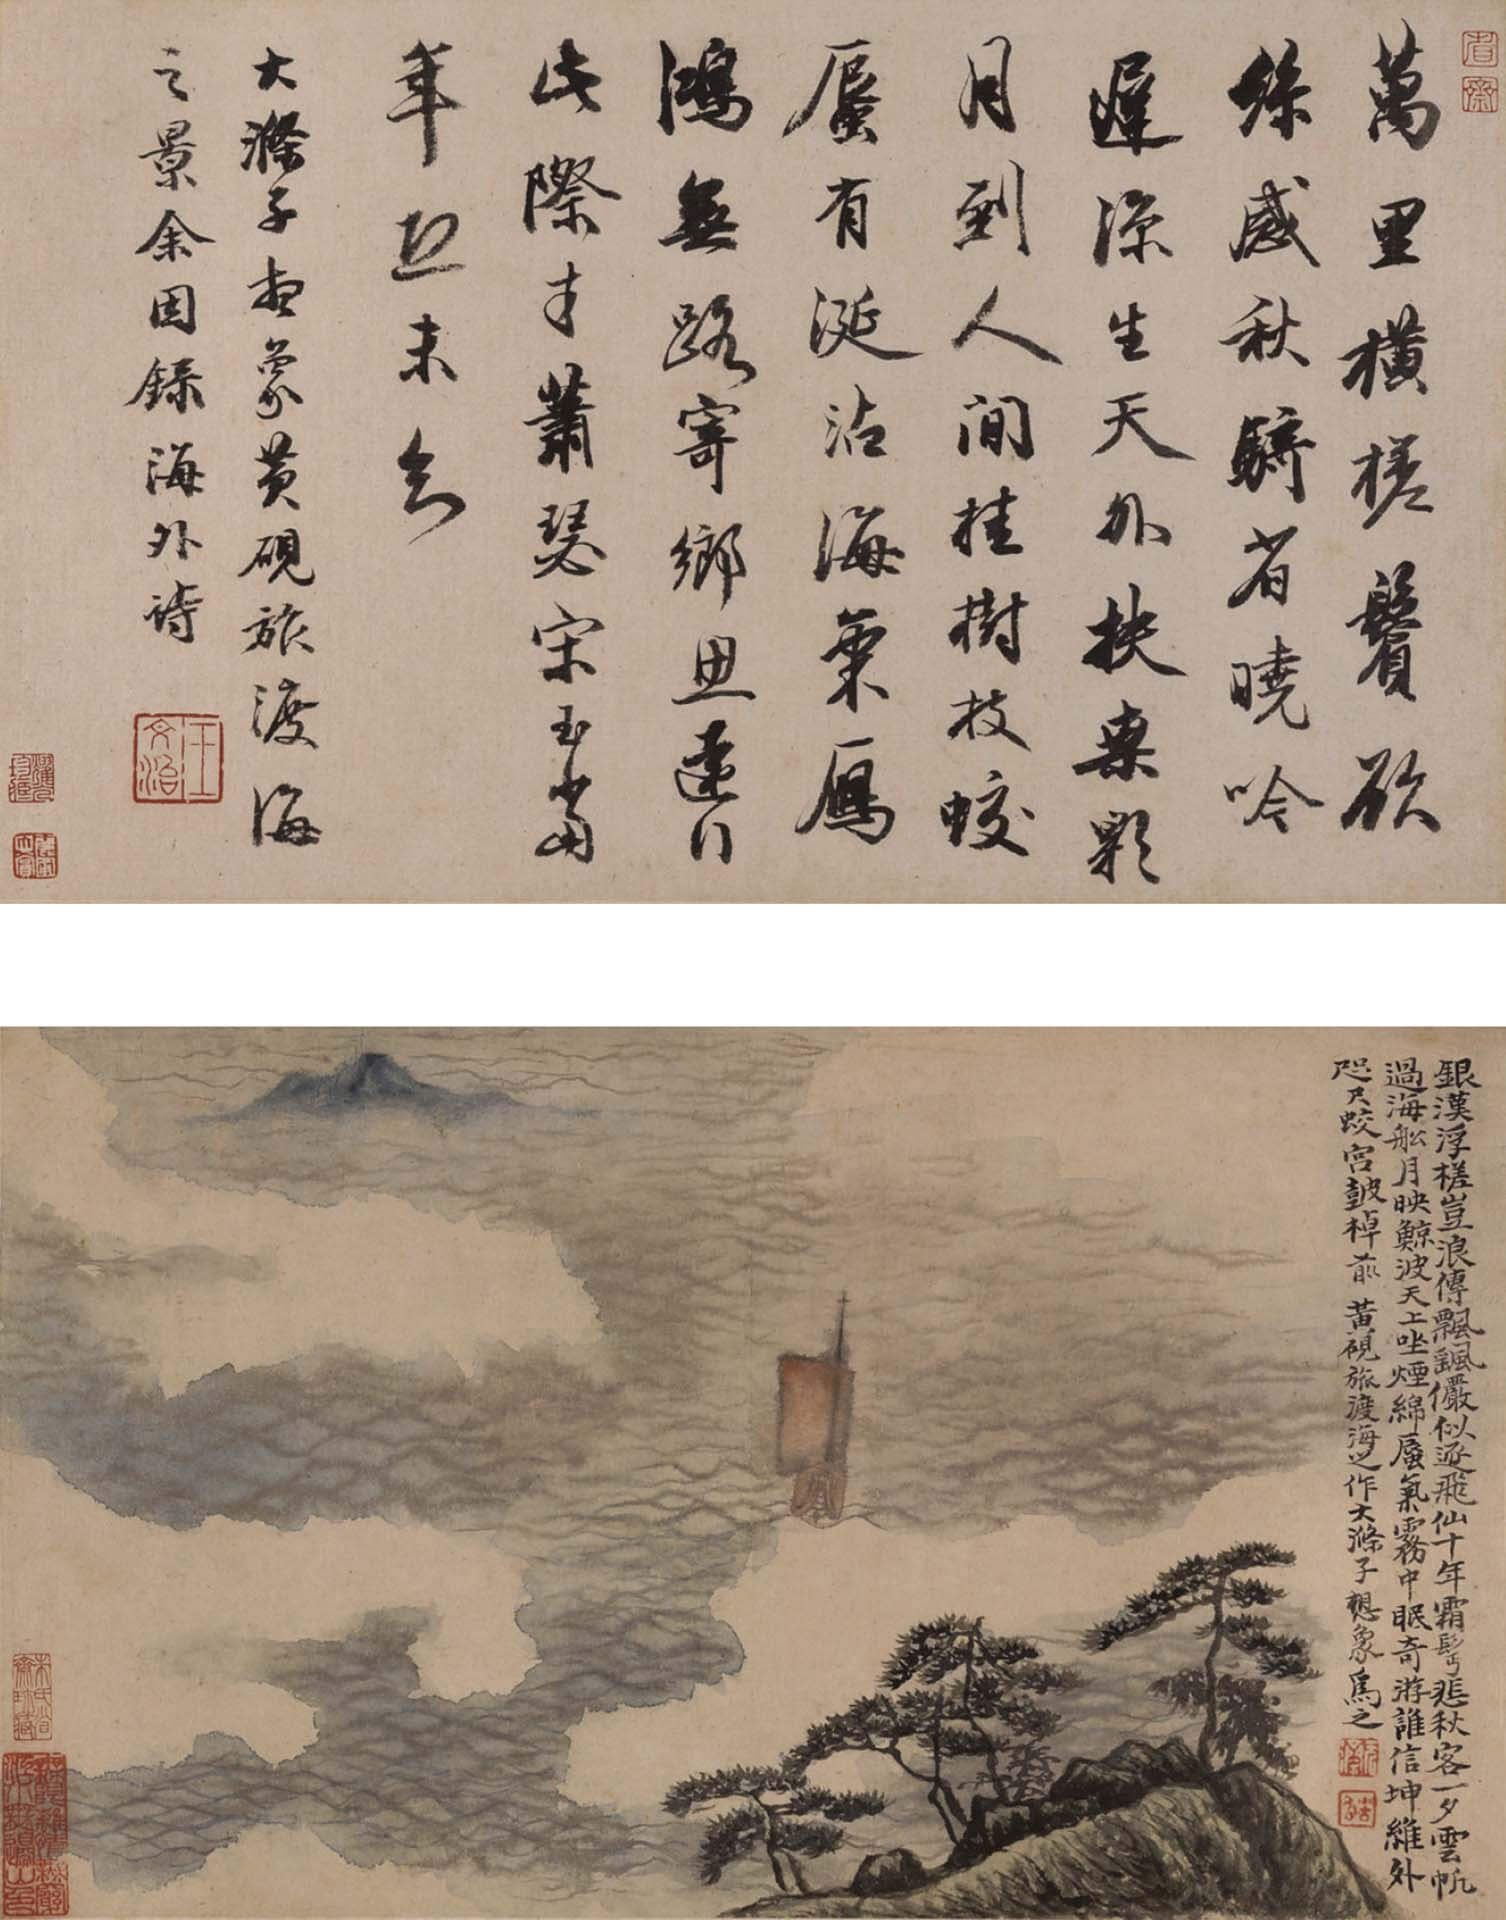 萬里橫槎鬢欲
絲感秋騎省曉吟
遲涼生天外扶桑影
月到人間桂樹枝蛟
蜃有涎沾海氣鴈
鴻無路寄鄉思遠行
此際才蕭瑟宋玉當
年恐未知
大滌子想象黃硯旅渡海
之景余因錄海外詩
王文治
銀漢浮槎豈浪傳飄颻儼似逐飛仙十年霜髩悲秋客一夕雲帆
過海船月映鯨波天上坐煙綿蜃氣霧中眠奇游誰信坤維外
咫尺蛟宮鼓棹前 黃硯旅渡海之作大滌子想象為之